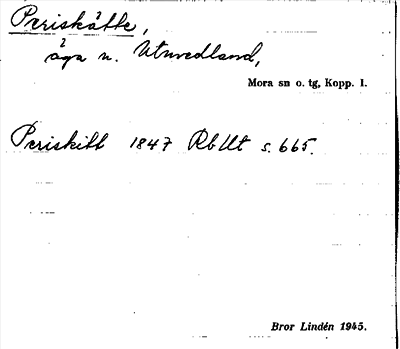 Periskätte,
åga n. Utnvedland,
Mora sn o. tg, Kopp. l.
Periskitt 1847 RbUt s. 665.
Bror Lindén 1945.